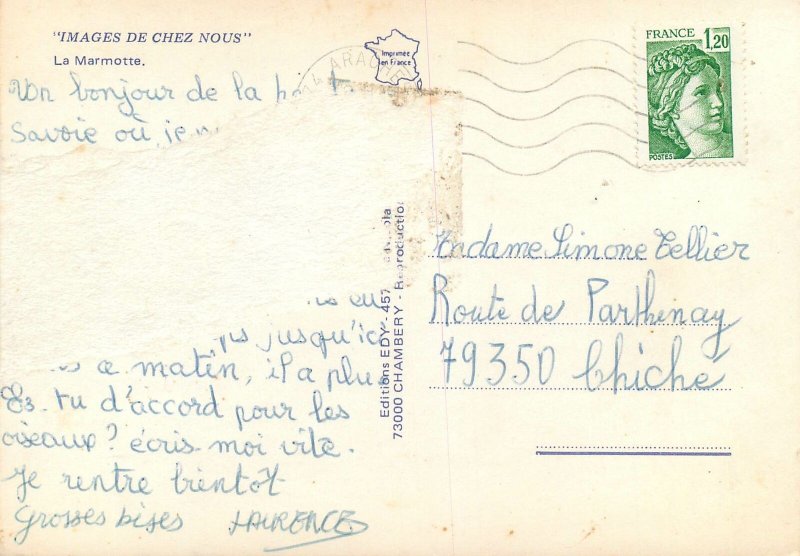 "IMAGES DE CHEZ NOUS"
La Marmotte.
Imprimée
en France
FRANCE 1,20
POSTES
Un bonjour de la
Savoie où je
jusqu'ici
matin, il a plu
tu d'accord pour les
oiseaux? écris-moi vite.
Je rentre bientôt
Grosses bises LAURENCE
Editions EDY - 457
73000 CHAMBERY - Reproduction
Madame Simone Tellier
Route de Parthenay
79350 Chiché